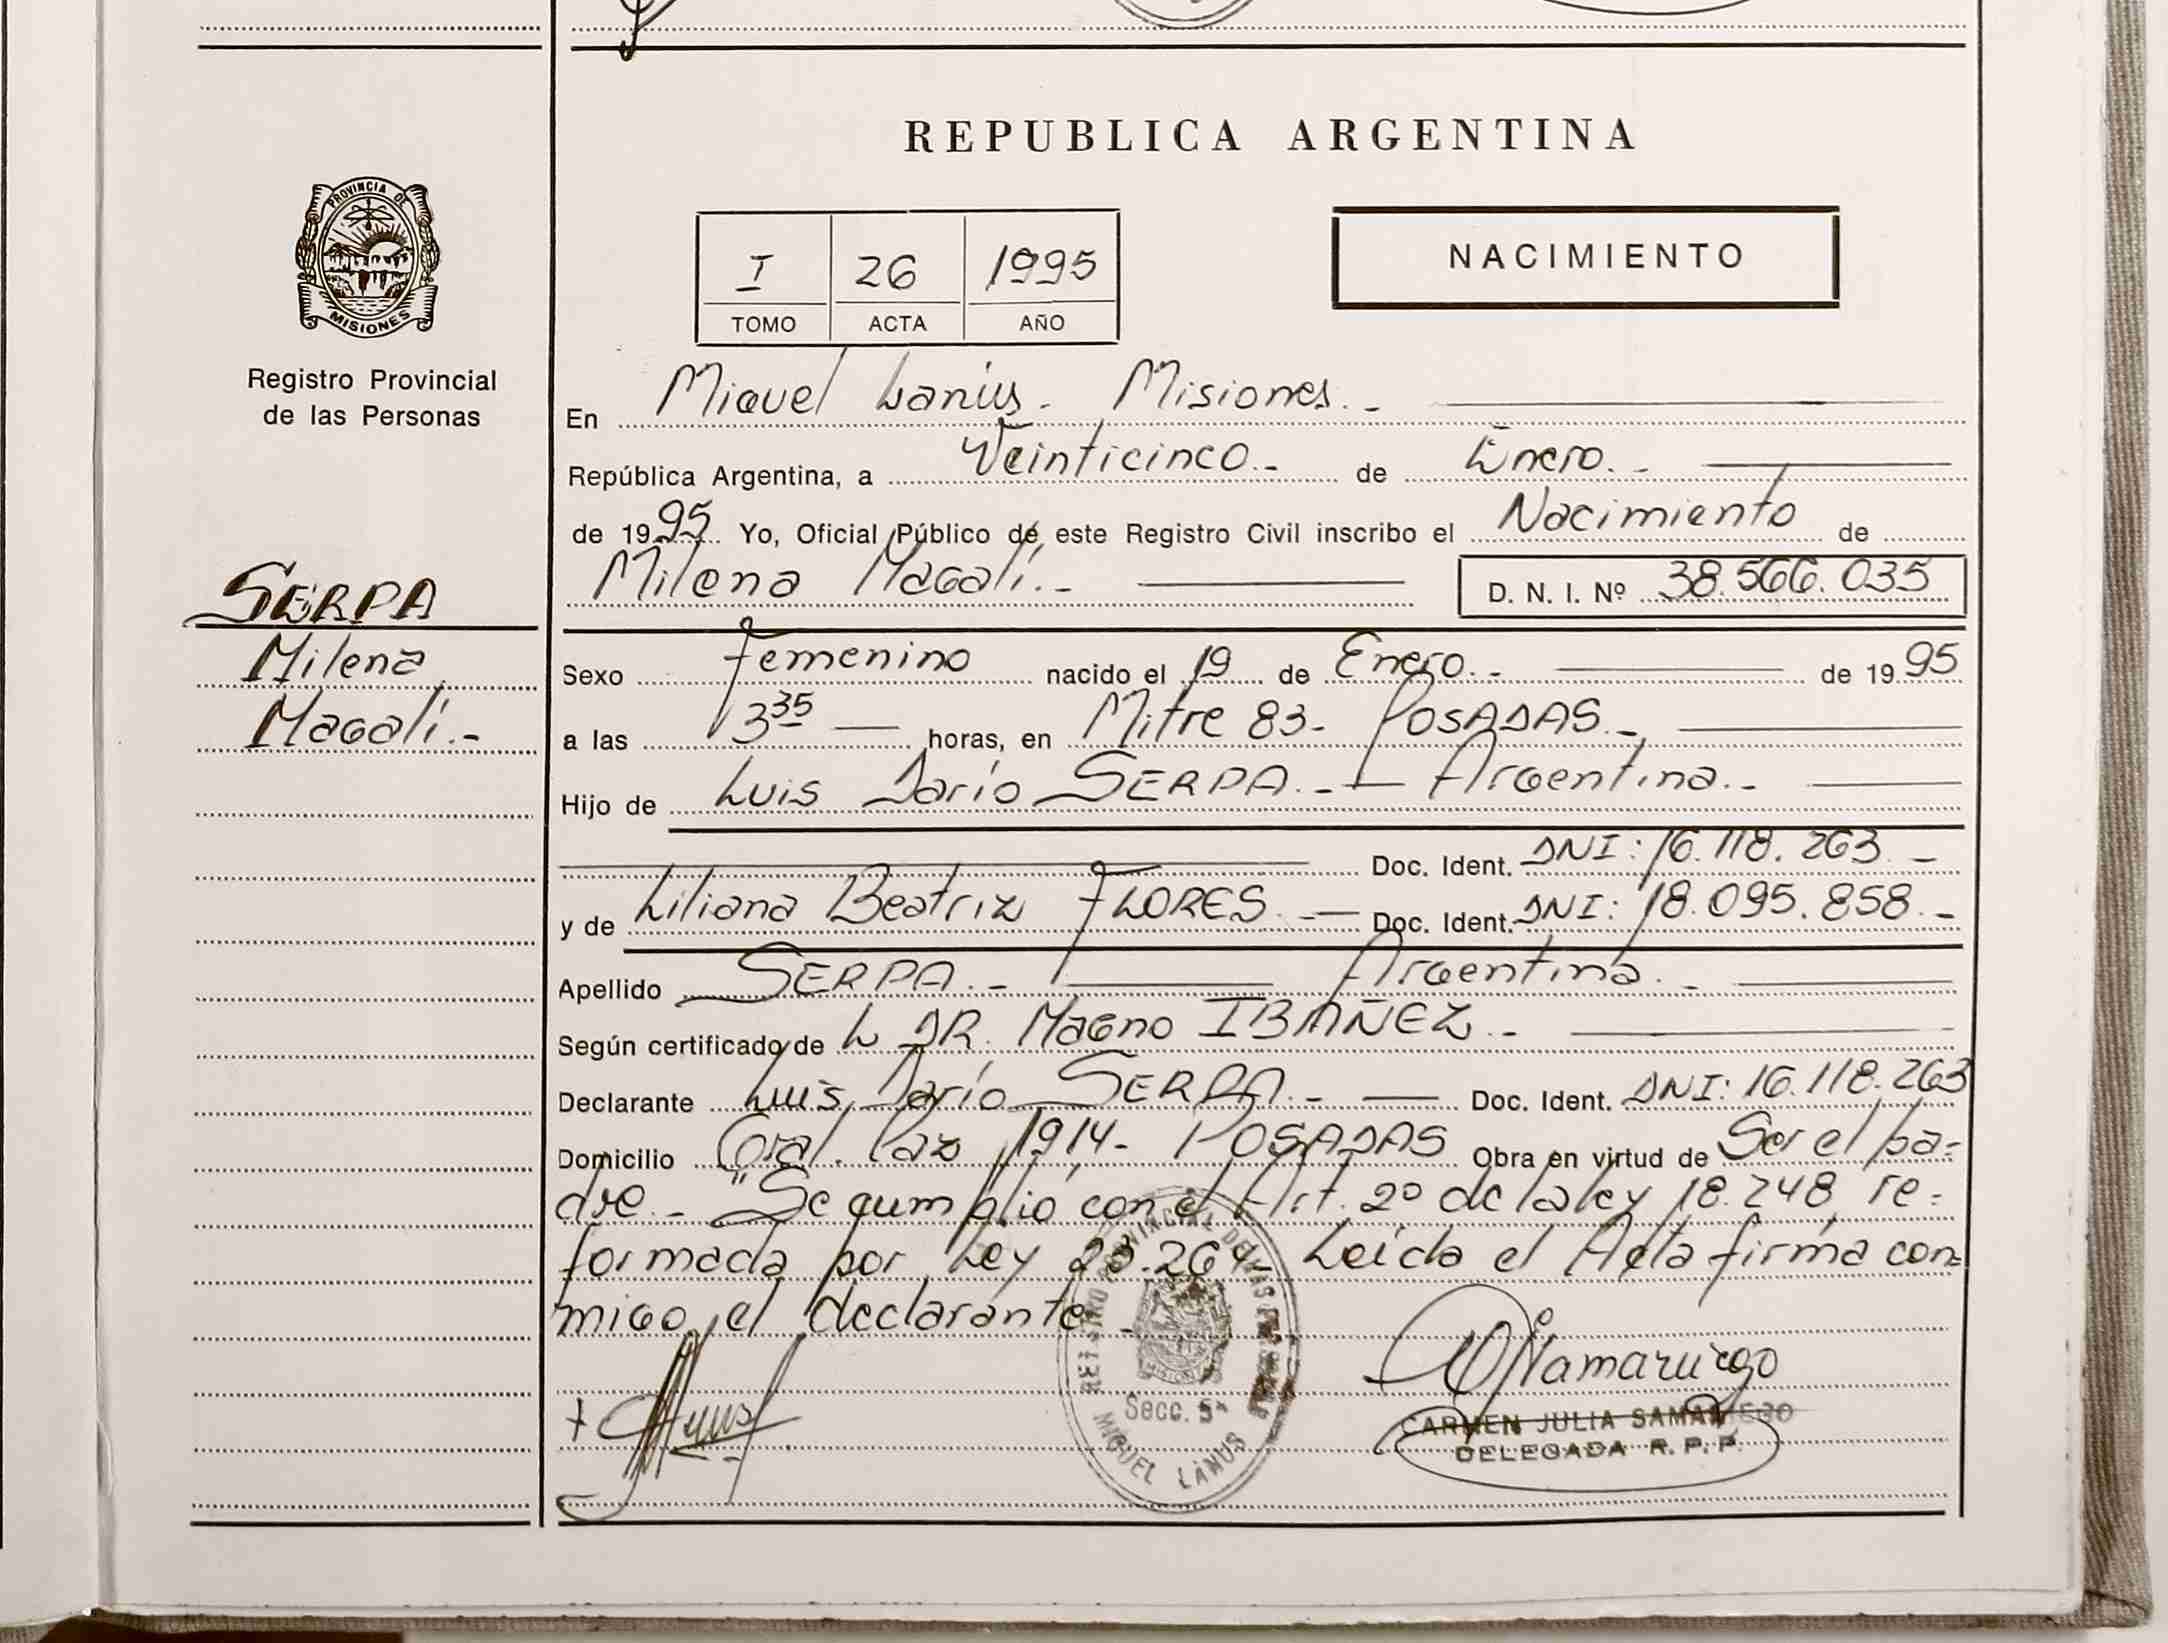 REPUBLICA ARGENTINA
PROVINCIA DE
MISIONES
Registro Provincial
de las Personas
SERPA
Milena
Magalí.-
I 26 1995
TOMO ACTA AÑO
NACIMIENTO
En Miguel Lanús. Misiones.-
República Argentina, a Veinticinco.- de Enero.-
de 1995 Yo, Oficial Público de este Registro Civil inscribo el Nacimiento de
Milena Magalí.- D. N. I. Nº 38.566.035
Sexo Femenino nacido el 19 de Enero.- de 1995
a las 3 35 horas, en Mitre 83- POSADAS.-
Hijo de Luis Darío SERPA.- Argentina.-
Doc. Ident. DNI: 16.118.263.-
y de Liliana Beatriz FLORES.- Doc. Ident. DNI: 18.095.858.-
Apellido SERPA.- Argentina.-
Según certificado de DR. Magno IBAÑEZ.-
Declarante Luis Darío SERPA.- Doc. Ident. DNI: 16.118.263
Domicilio Gral. Paz 1914- POSADAS Obra en virtud de Ser el pa-
dre.- "Se cumplió con el Art. 2º de la ley 18.248, re-
formada por Ley 23.264- Leída el Acta firma con-
migo, el declarante.-
REGISTRO PROVINCIAL DE LAS
Secc. 5ª
MIGUEL LANUS
CARMEN JULIA SAMANIEGO
DELEGADA R. P. P.